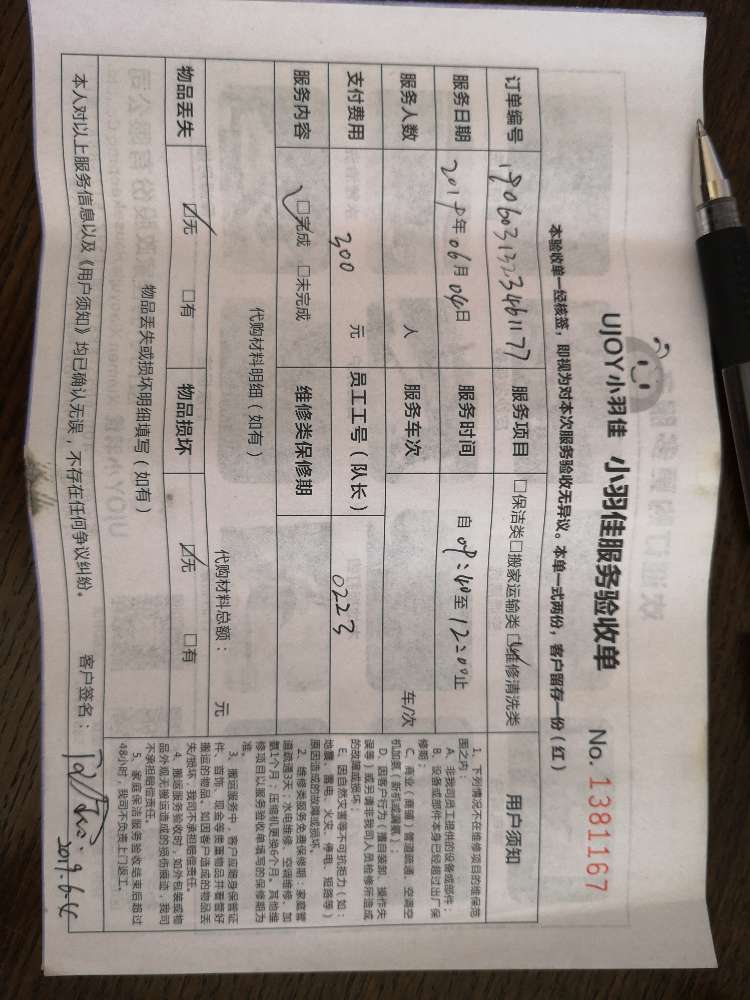 UJOY小羽佳 小羽佳服务验收单 No. 1381167
本验收单一经核签，即视为对本次服务验收无异议。本单一式两份，客户留存一份（红）
订单编号 190603132346 1177 服务项目 □保洁类□搬家运输类☑维修清洗类 用户须知
服务日期 2019年06月04日 服务时间 自09:40至12:00止
服务人数 人 服务车次 车/次
支付费用 300 元 员工工号（队长） 0223
服务内容 ☑完成 □未完成 维修类保修期
代购材料明细（如有） 代购材料总额： 元
物品丢失 ☑无 □有 物品损坏 ☑无 □有
物品丢失或损坏明细填写（如有）
1、下列情况不在维修项目的维保范
围之内：
A、非我司员工提供的设备或部件；
B、设备或部件本身已经超过出厂保
修期；
C、商业（商铺）管道疏通、空调空
机加氟（新机或漏氟）；
D、因客户行为（擅自装卸、操作失
误等）或另请非我司人员检修所造成
的故障或损坏；
E、因自然灾害等不可抗拒力（如：
地震、雷电、火灾、停电、短路等）
原因造成的故障或损坏。
2、维修类服务免费保修期：家庭管
道疏通3天；水电维修、空调维修、加
氟1个月；压缩机更换6个月。其他维
修项目以服务验收单填写的保修期为
准。
3、搬运服务中，客户应随身保管证
件、首饰、现金等贵重物品并看管好
搬运的物品，如因客户造成的物品丢
失/损坏，我司不承担赔偿责任。
4、搬运服务验收时，如外包装或物
品外观无搬运造成的损伤痕迹，我司
不承担赔偿责任。
5、家庭保洁服务验收结束后超过
48小时，我司不负责上门返工。
本人对以上服务信息以及《用户须知》均已确认无误，不存在任何争议纠纷。 客户签名：
2019.6.4